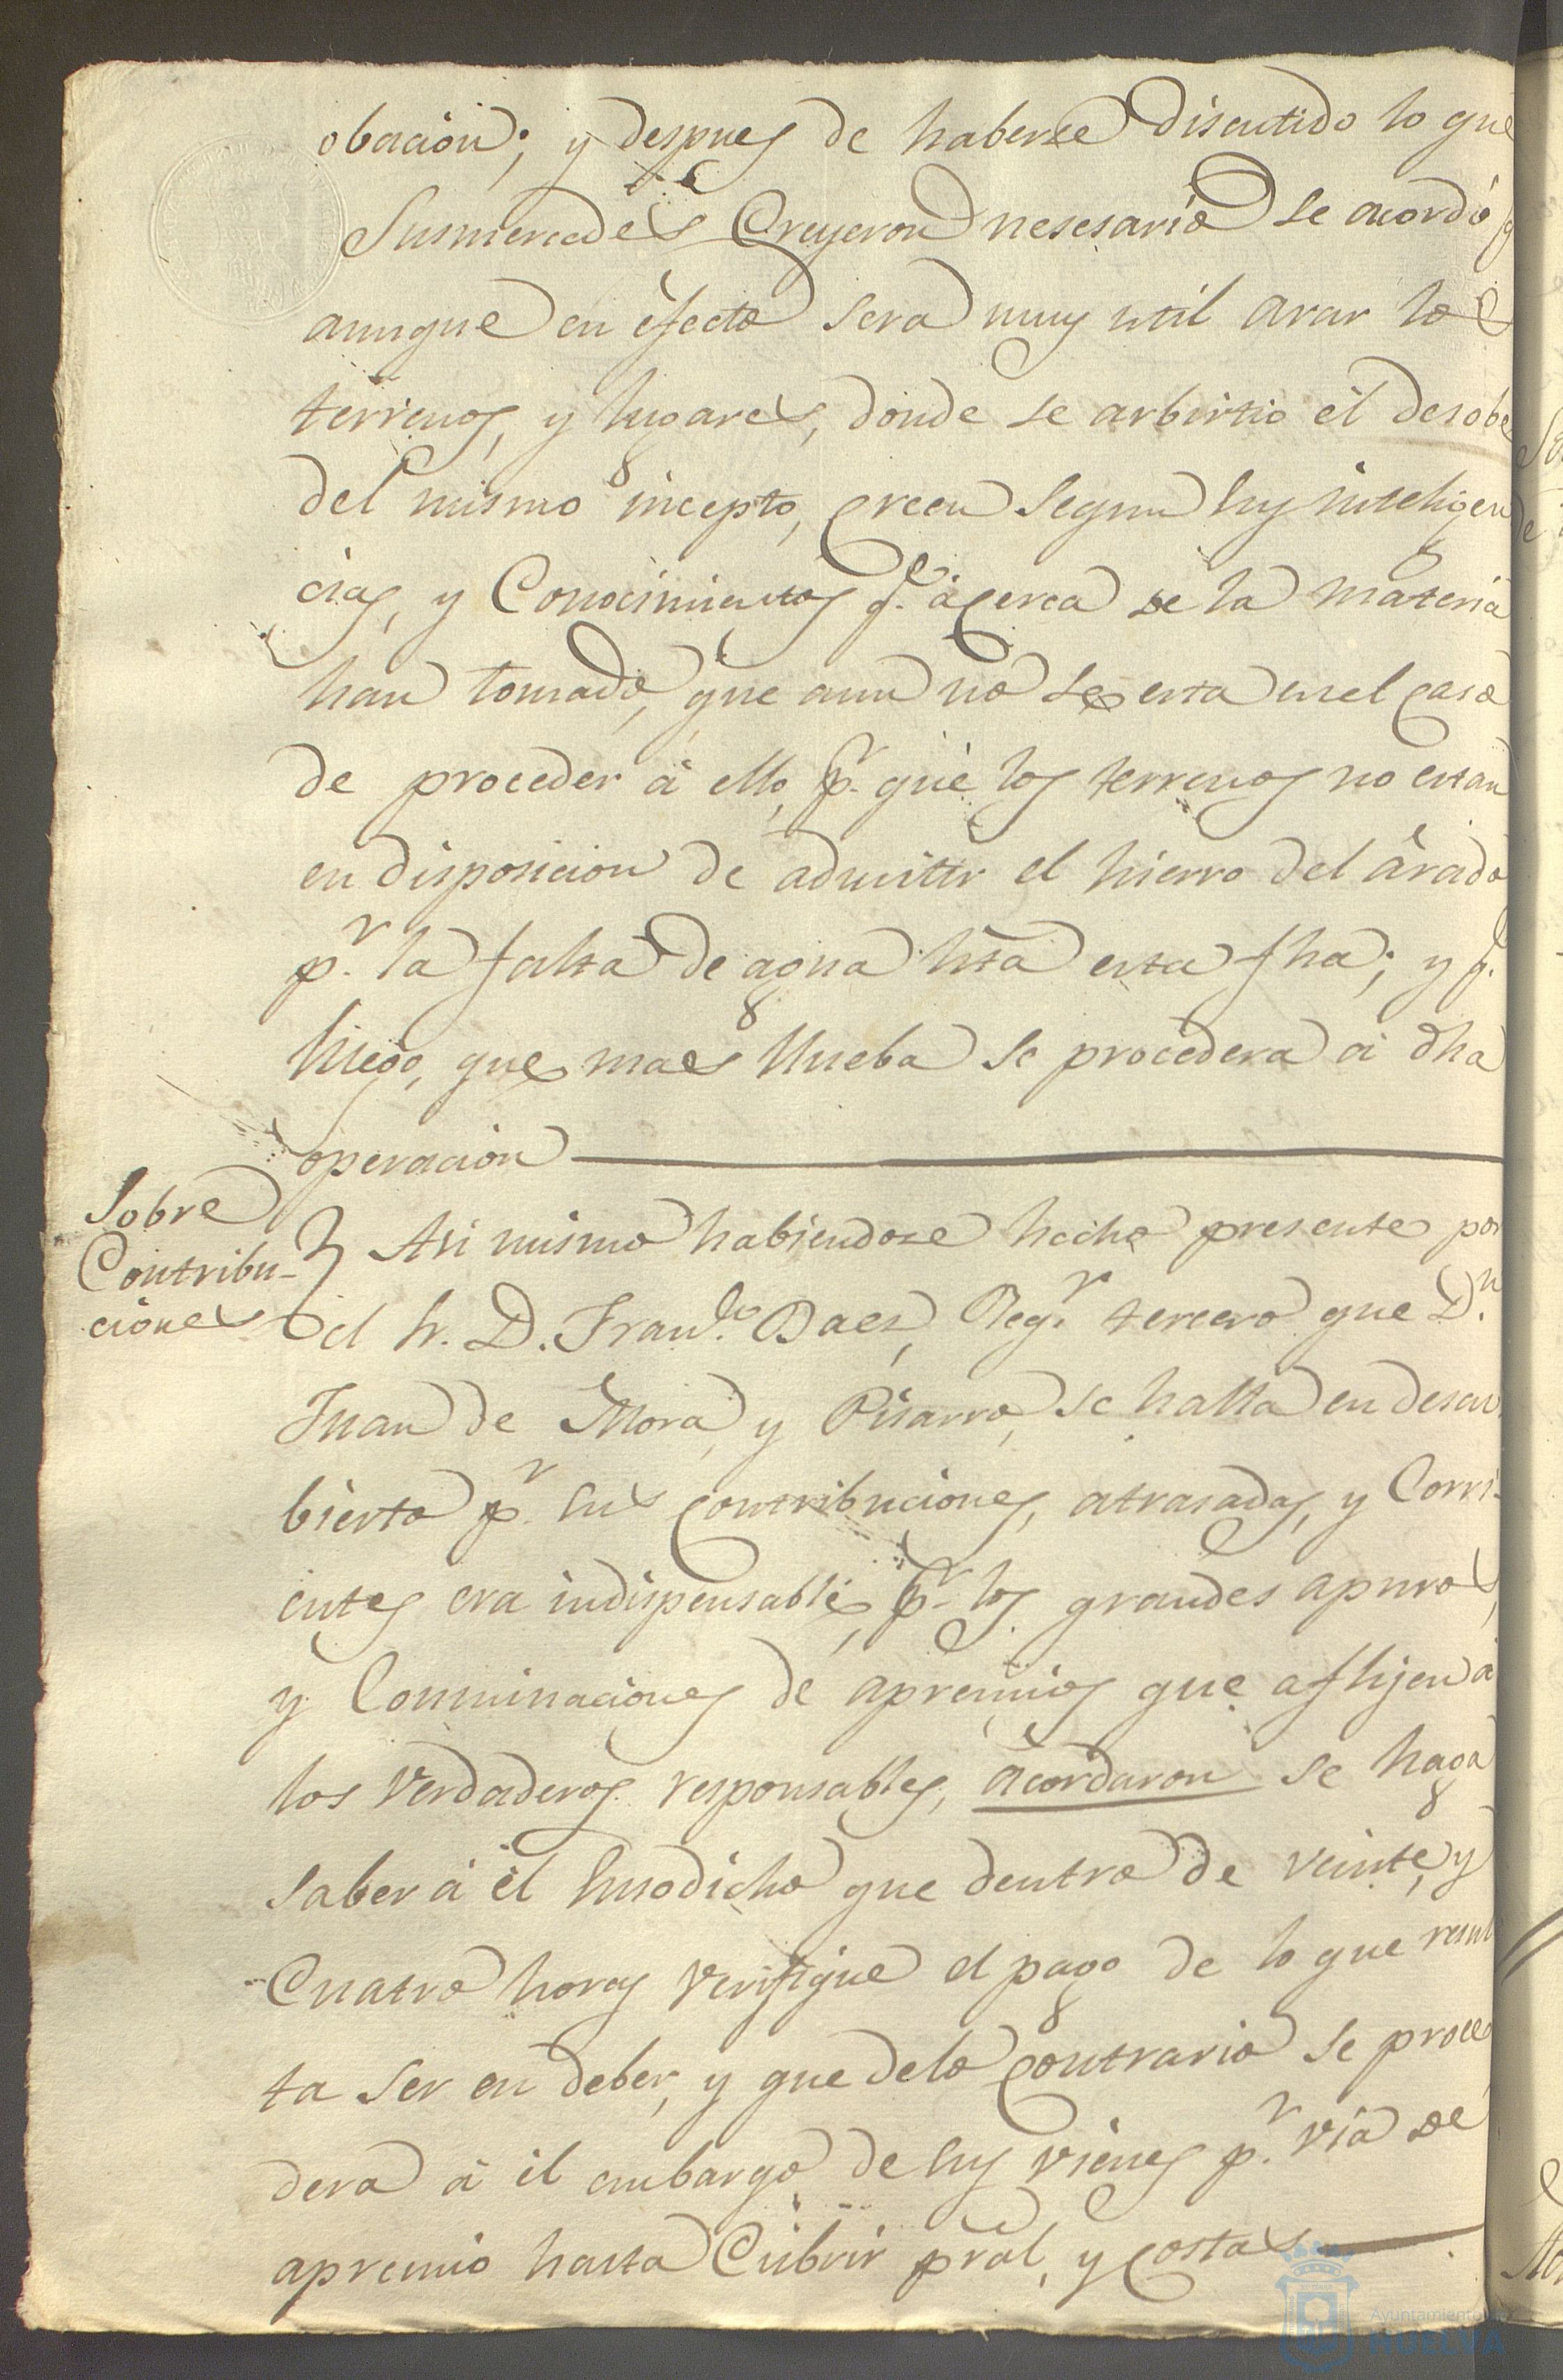 obación; y despues de haberse discutido lo que
Susmercedes Creyeron nesesario se acordó q
aunque en éfecto sera muy util arar los
terrenos, y lugares, donde se arbirtio él desobe
del mismo incepto, creen segun sus inteligen
cias, y Conocimientos q.e acerca de la materia
han tomado, que aun no se esta en el caso
de proceder á ello, p.r que los terrenos no estan
en disposicion de admitir el hierro del árado
p.r la falta de agua hta esta fha; y q.e
luego, que mas llueba se procedera á dha
operacion
Sobre
Contribu-
ciones
Asi mismo habiendose hecho presente por
el Sr. D. Fran.co Baez, Reg.r tercero que D.n
Juan de Mora, y Pisarro, se halla en descu
bierto p.r sus contribuciones, atrasadas, y Corri-
entes era indispensable, p.r los grandes apuros,
y Conminaciones de apremios que aflijen á
los Verdaderos responsables, acordaron se haga
saber á él Susodicho que dentro de veinte, y
Cuatro horas Verifique el pago de lo que resul
ta ser en deber, y que delo contrario se proce
dera á él embargo de sus vienes p.r via de
apremio hasta Cubrir pral, y costas
Ayuntamiento de
HUELVA